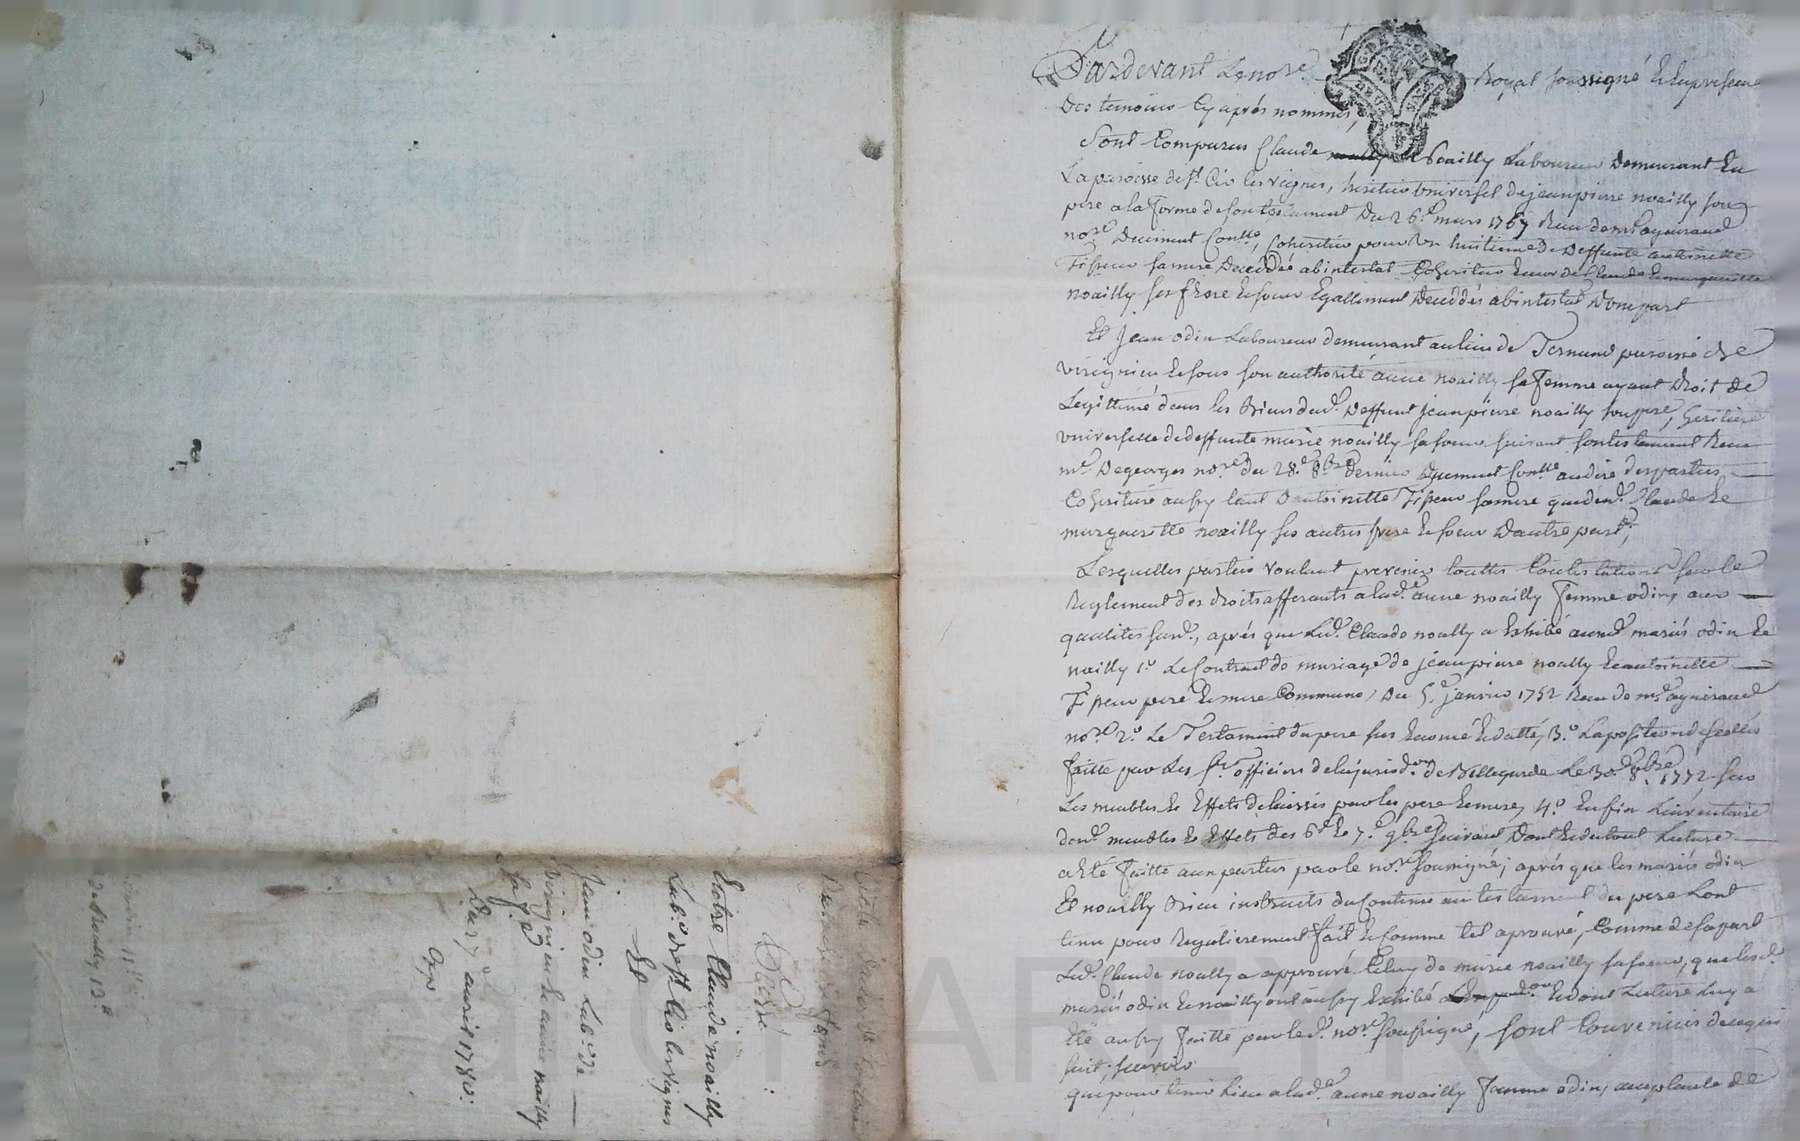 Pardevant Le no.re Royal soussigné & en presence
Des temoins Cy après nommés,
Sont Comparus Claude noailly Laboureur Demeurant En
La paroisse de St Cir les vignes, heritier universel de jean pierre noailly son
pere a la forme de son testament Du 26.e mars 1767 Reçu de m.e aguiraud
no.re Duement Conllé, Coheritier pour un huitieme de Deffunte antoinette
Tisseur sa mere Decédée abintestat Coheritier encor de Claude & marguerite
noailly ses frere & soeur Egallement Decédés abintestat D'une part
Et Jean odin Laboureur demeurant au lieu de Ternand paroisse de
virignieu & sous son authorité anne noailly sa femme ayant Droit de
Legittime dans les Biens dud. Deffunt jean pierre noailly son pere, heritiere
universelle de deffunte marie noailly sa soeur suivant son testament Reçu
m.e Degeorges no.re du 28.e 8bre dernier Duement Conllé au dire des parties
Coheritiere aussy tant D'antoinette Tisseur sa mere que desd. Claude &
margueritte noailly ses autres frere & soeur D'autre part,
Lesquelles parties voulant prevenir touttes Contestations sur le
Reglement des droits afferants a lad. anne noailly femme odin, aux
qualites susd., après que Led. Claude noailly a Exhibé auxd. mariés odin &
noailly 1.o Le Contrat de mariage de jean pierre noailly & antoinette
Tisseur pere & mere Communs, Du 5.e janvier 1752 Reçu de m.e aguiraud
no.re 2.o Le Testament du pere sus Enoncé & datté, 3.o L'aposition de scellés
faitte par Les srs officiers de la jurisd.on de Bellegarde Le 30.e 8bre 1772, sur
Les meubles & Effets delaissés par les pere & mere, 4.o Enfin L'inventaire
desd. meubles & Effets des 6.e & 7.e 9bre suivant Dont & du tout Lecture
a Eté faitte aux parties par le no.re soussigné; après que les mariés odin
Et noailly Bien instruits du Contenu au testament du pere L'ont
tenu pour Regulierement fait & Comme tel aprouvé, Comme de sa part
Led. Claude noailly a approuvé Celuy de marie noailly sa soeur, que lesd.
mariés odin & noailly ont aussy Exhibé & dont Lecture Luy a
Eté aussy faitte par led. no.re soussigné, sont Convenus de ce qui
suit, sçavoir
que pour tenir Lieu a lad. anne noailly femme odin, au
Entre Claude noailly
Lab.r de St Cir les vignes
Et
Jean odin Lab.r de
virignieu & anne noailly
sa f.e
Du 7 avril 1780.
Expo
de noailly 13.e
CHAREYRON